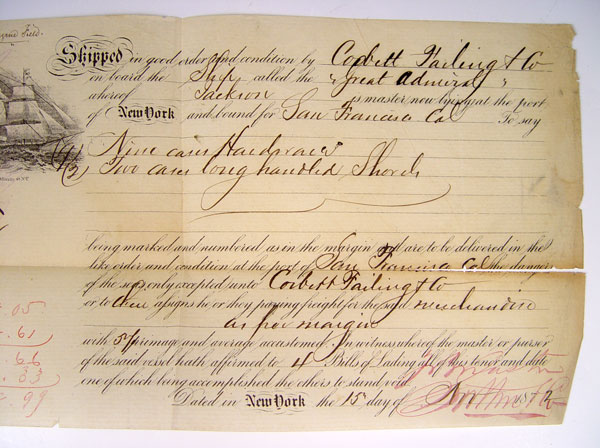 Field.
Shipped in good order and condition by Corbett Failing & Co
on board the Ship called the "Great Admiral"
whereof Jackson is master now lying at the port
of New York and bound for San Francisco Cal To say
Nine cases Hardware
Two cases long handled Shovels
being marked and numbered as in the margin and are to be delivered in the
like order and condition at the port of San Francisco Cal the danger
of the seas only accepted unto Corbett Failing & Co
or to their assigns he or they paying freight for the said merchandise
as per margin
with 5% primage and average accustomed. In witness whereof the master or purser
of the said vessel hath affirmed to 4 Bills of Lading all of this tenor and date
one of which being accomplished the others to stand void.
Dated in New York the 15 day of 187
.05
.61
.66
.33
.99